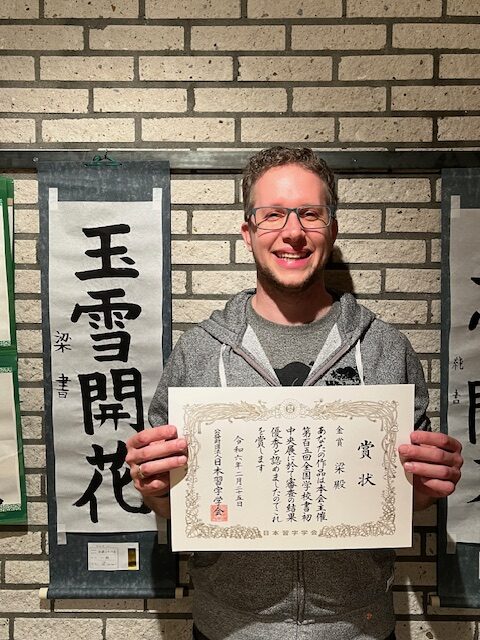 玉雪開花
梁書
賞状
金賞 梁殿
あなたの作品は本会主催
第百五回全国学校書初
中央展に於て審査の結果
優秀と認めましたのでこれ
を賞します
令和六年二月二十五日
公益財団法人日本習字学会
日本習字学会
純書